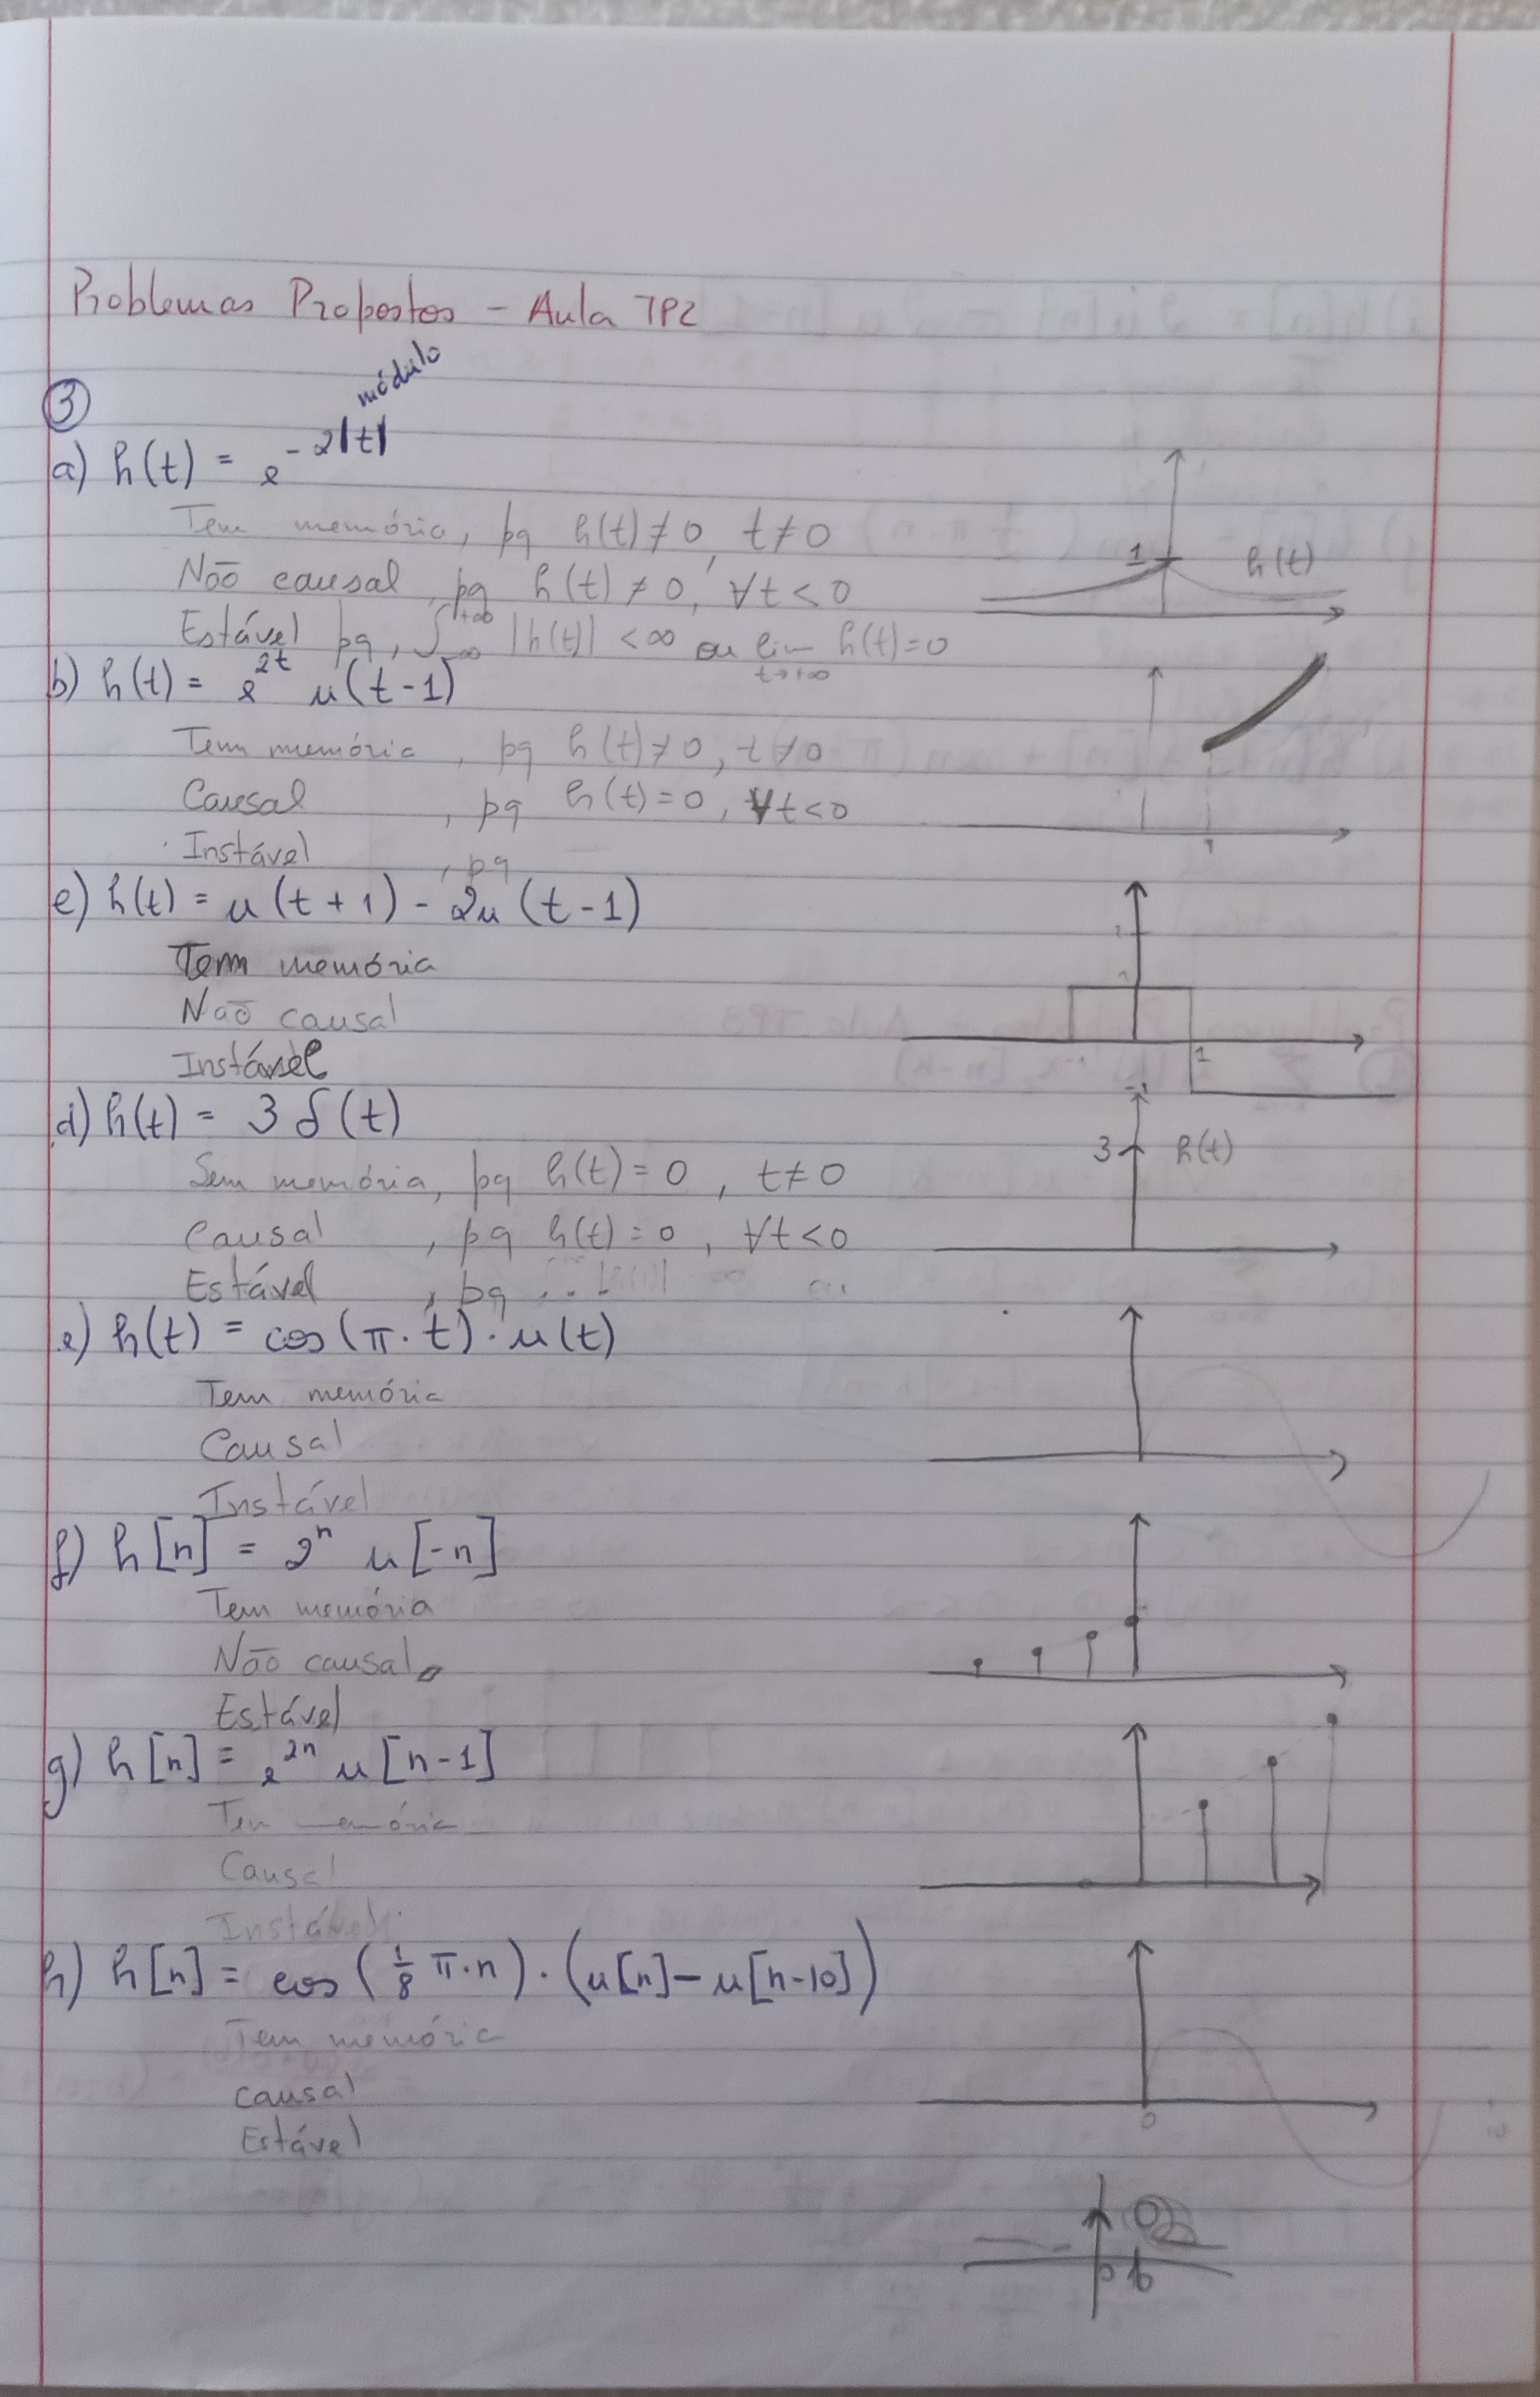 Problemas Propostos - Aula TP2
módulo
3
a) h(t) = e^-2|t|
Tem memória, pq h(t) ≠ 0, t ≠ 0
1 h(t)
Não causal, pq h(t) ≠ 0, ∀t < 0
Estável pq, ∫_-∞^+∞ |h(t)| < ∞ ou lim_t→+∞ h(t) = 0
b) h(t) = e^2t u(t-1)
Tem memória, pq h(t) ≠ 0, t ≠ 0
Causal, pq h(t) = 0, ∀t < 0
1
Instável, pq
c) h(t) = u(t+1) - 2u(t-1)
Tem memória
Não causal
1
Instável
-1
d) h(t) = 3 δ(t)
3 h(t)
Sem memória, pq h(t) = 0, t ≠ 0
Causal, pq h(t) = 0, ∀t < 0
Estável, pq
e) h(t) = cos(π·t)·u(t)
Tem memória
Causal
Instável
f) h[n] = 2^n u[-n]
Tem memória
Não causal
Estável
g) h[n] = e^2n u[n-1]
Tem memória
Causal
Instável
h) h[n] = cos(1/8 π·n)·(u[n] - u[n-10])
Tem memória
causal
0
Estável